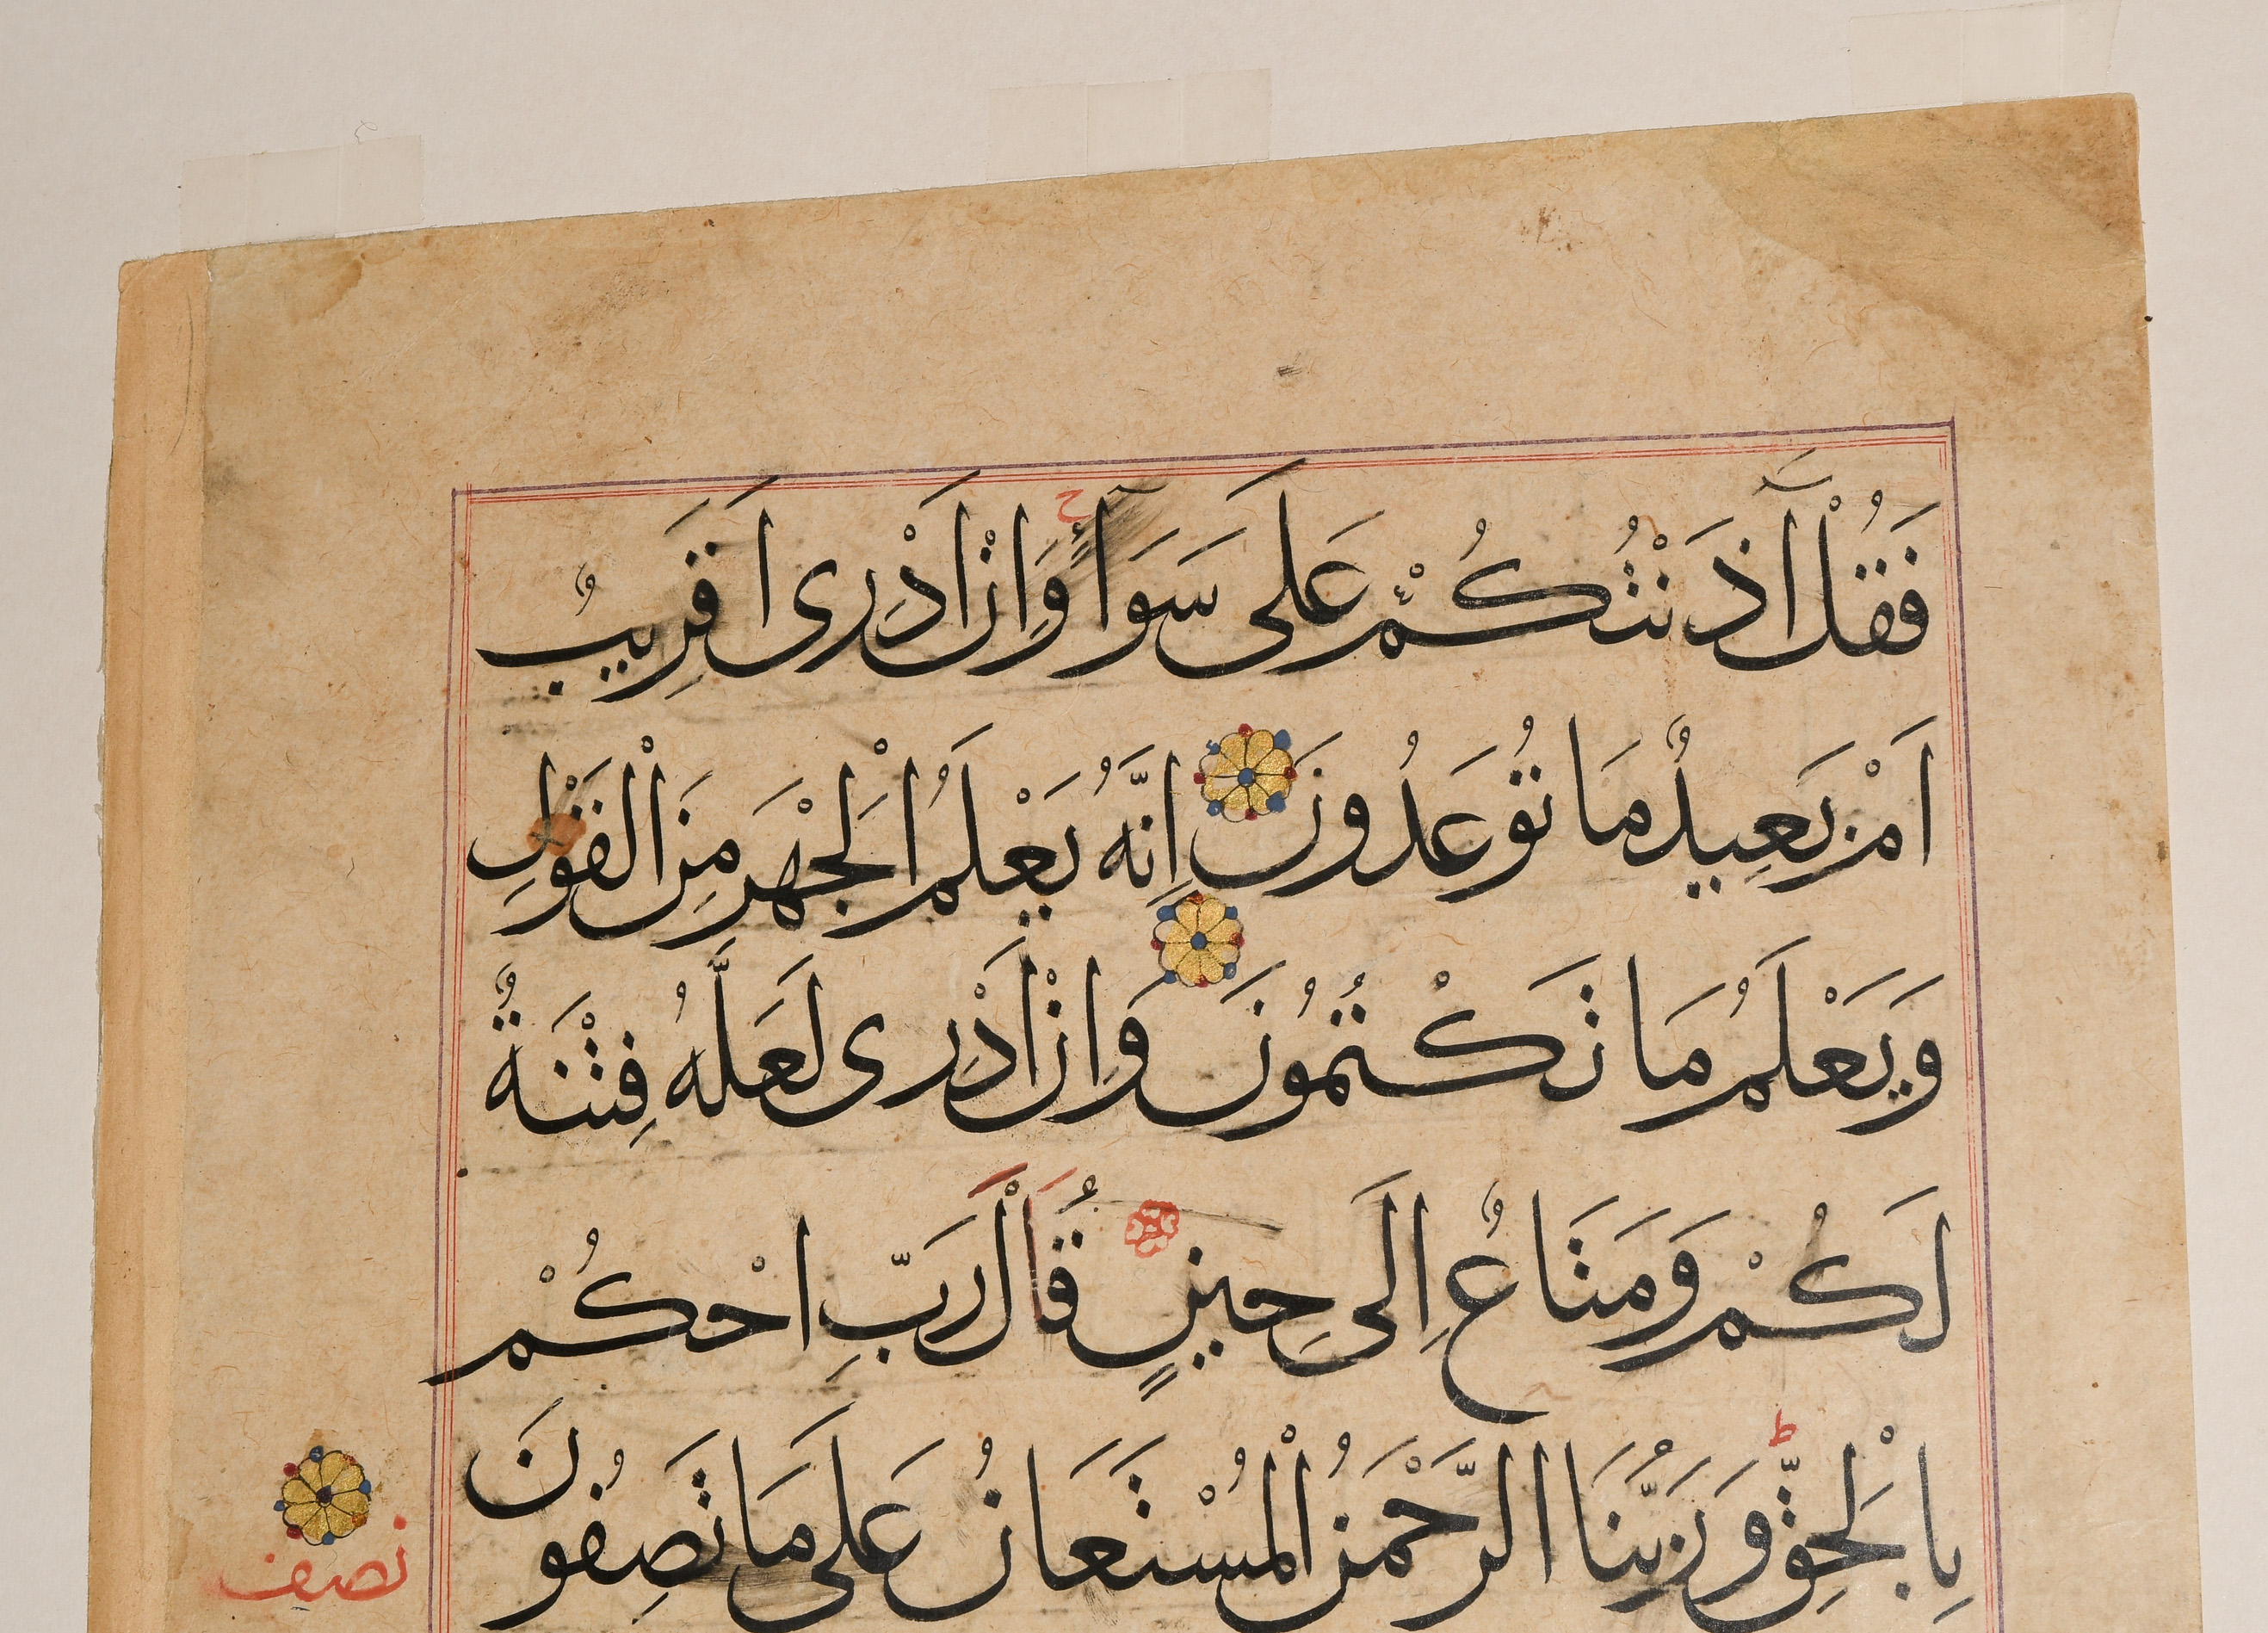 فَقُلْ آذَنْتُكُمْ عَلَى سَوَآءٍ وَاِنْ اَدْرِى اَقَرِيبٌ
اَمْ بَعِيدٌ مَا تُوعَدُونَ اِنَّهُ يَعْلَمُ الْجَهْرَ مِنَ الْقَوْلِ
وَيَعْلَمُ مَا تَكْتُمُونَ وَاِنْ اَدْرِى لَعَلَّهُ فِتْنَةٌ
لَكُمْ وَمَتَاعٌ اِلَى حِينٍ قُلْ رَبِّ احْكُمْ
بِالْحَقِّ ط وَرَبُّنَا الرَّحْمَنُ الْمُسْتَعَانُ عَلَى مَا تَصِفُونَ
نصف